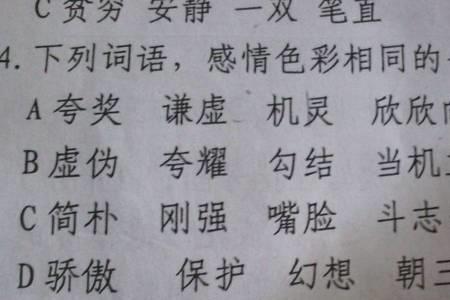 C 贫穷 安静 一双 笔直
4. 下列词语，感情色彩相同的
A 夸奖 谦虚 机灵 欣欣
B 虚伪 夸耀 勾结 当机
C 简朴 刚强 嘴脸 斗志
D 骄傲 保护 幻想 朝三